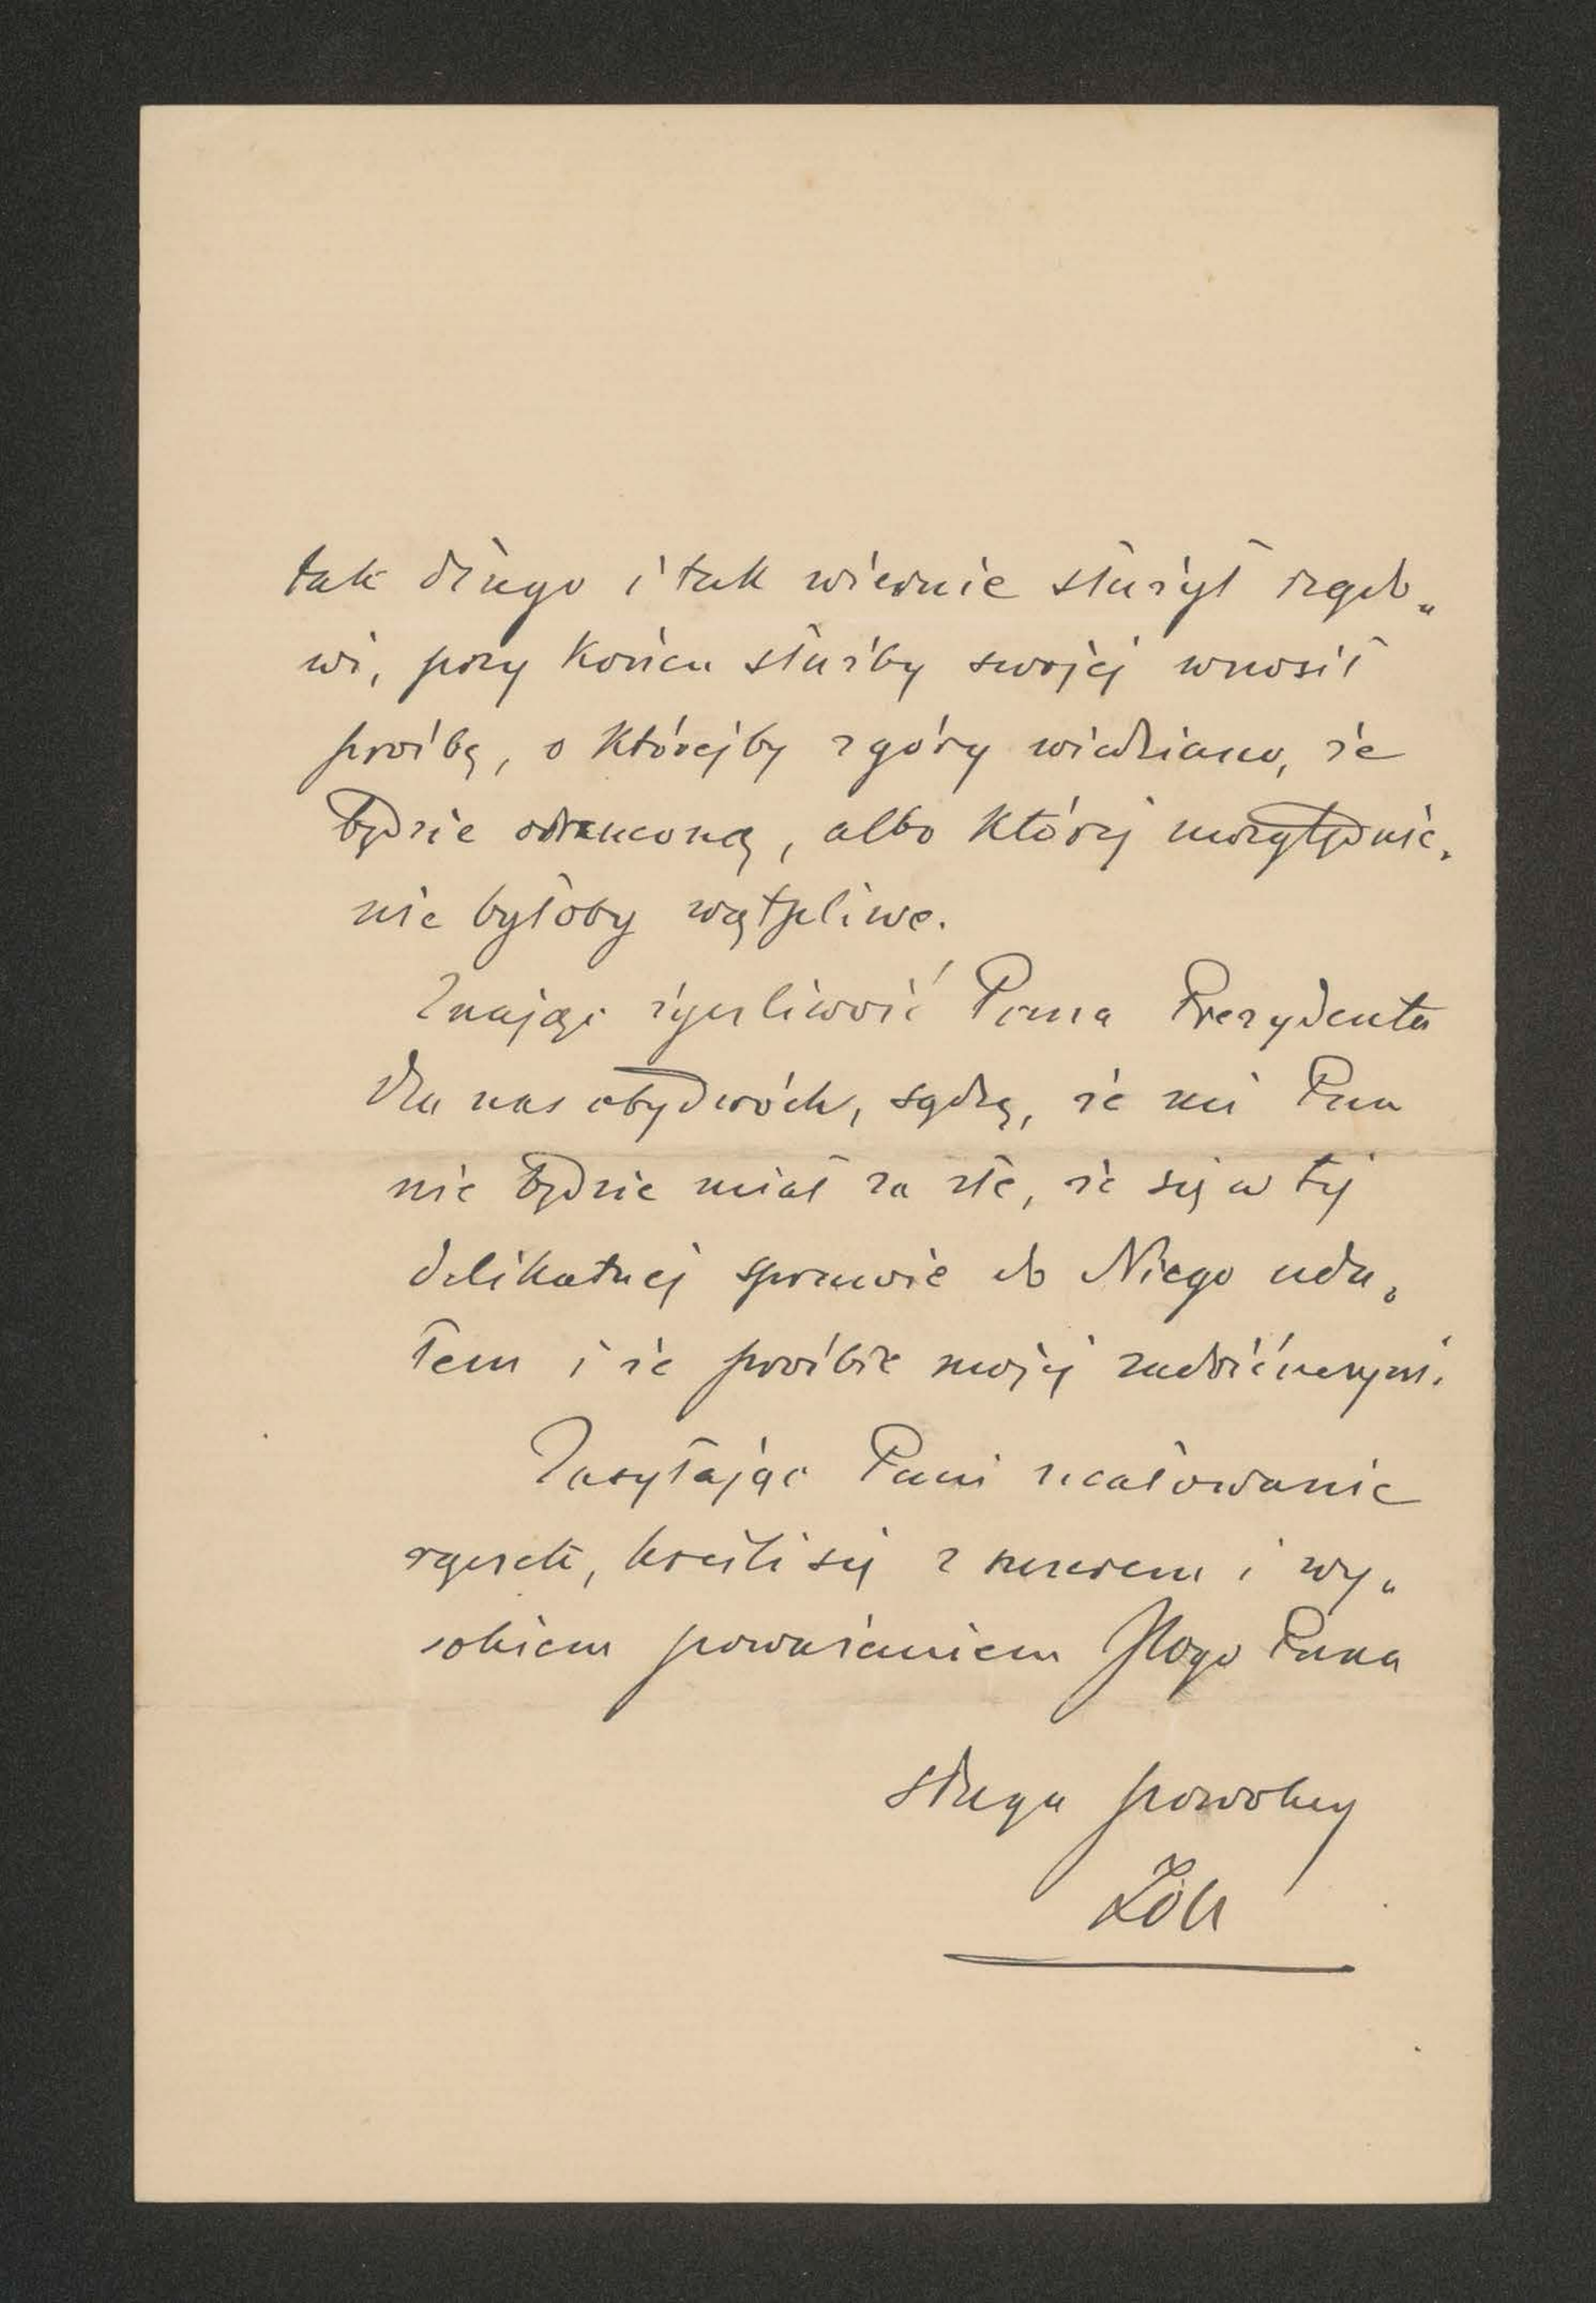 tak długo i tak wiernie służył rządo„
wi, przy końcu służby swojej wnosił
prośbę, o którejby zgóry wiedziano, że
będzie odrzuconą, albo której uwzględnie„
nie byłoby wątpliwe.
Znając życzliwość Pana Prezydenta
dla nas obydwóch, sądzę, że mi Pan
nie będzie miał za złe, że się w tej
delikatnej sprawie do Niego uda„
łem i że prośbie mojej
Zasyłając Pani ucałowanie
rączek, kreśli się z szczerem i wy„
sokiem poważaniem JWgo Pana
sługa powolny
Zoll